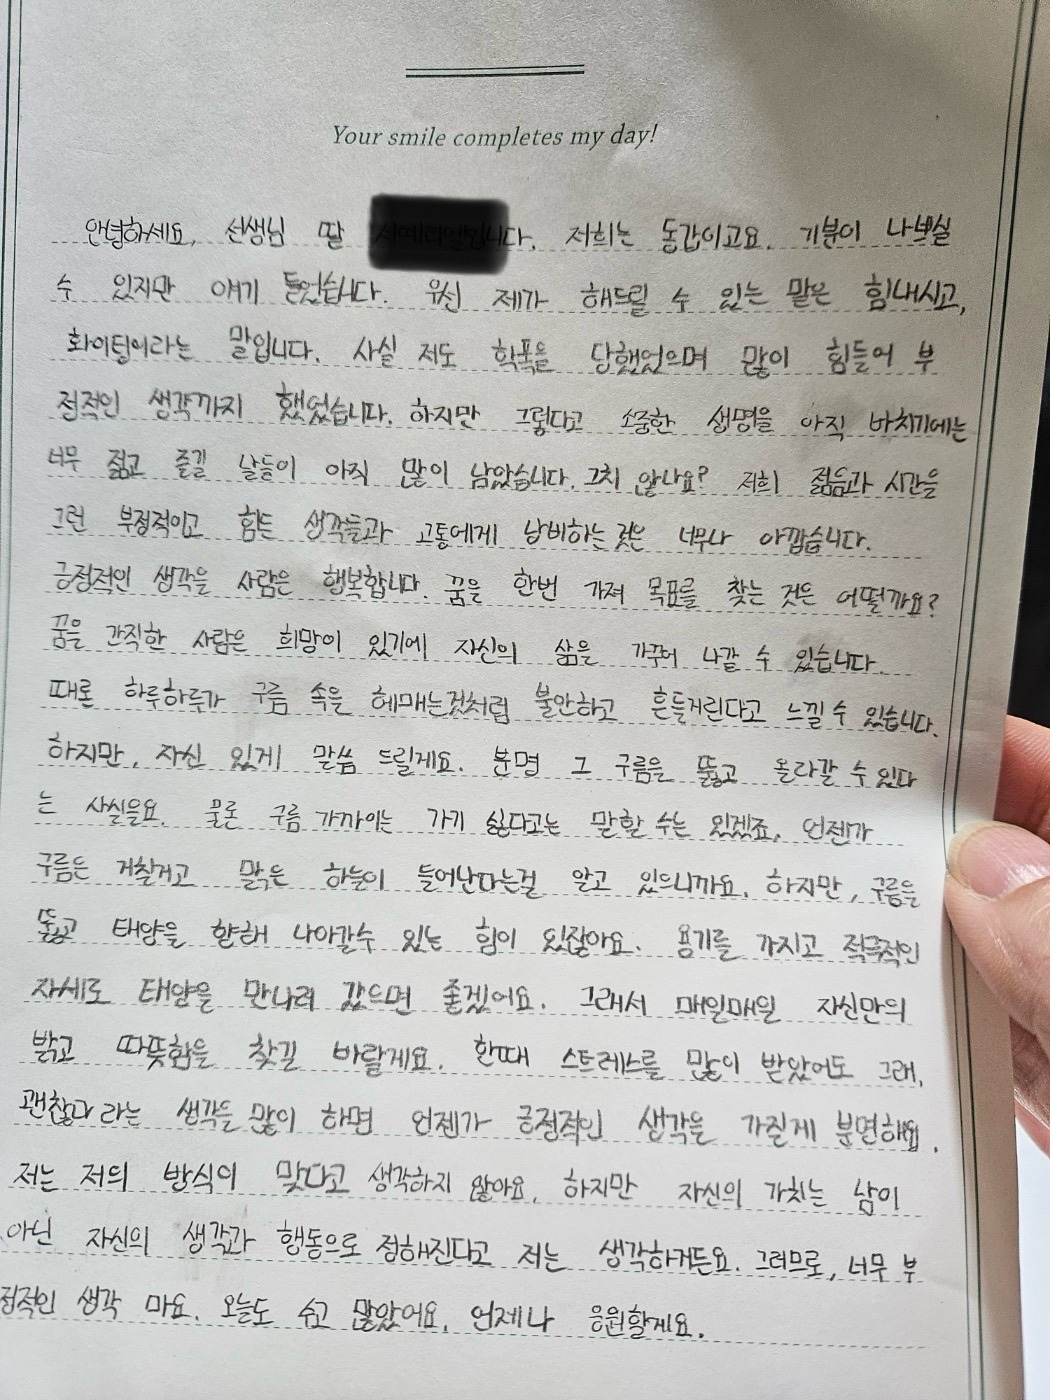 Your smile completes my day!
안녕하세요, 선생님 딸 다. 저희는 동갑이고요. 기분이 나쁘실
수 있지만 얘기 들었습니다. 우선 제가 해드릴 수 있는 말은 힘내시고,
화이팅이라는 말입니다. 사실 저도 학폭을 당했었으며 많이 힘들어 부
정적인 생각까지 했었습니다. 하지만 그렇다고 소중한 생명을 아직 바치기에는
너무 젊고 즐길 날들이 아직 많이 남았습니다. 그치 않나요? 저희 젊음과 시간을
그런 부정적이고 힘든 생각들과 고통에게 낭비하는 것은 너무나 아깝습니다.
긍정적인 생각을 사람은 행복합니다. 꿈을 한번 가져 목표를 찾는 것은 어떨까요?
꿈을 간직한 사람은 희망이 있기에 자신의 삶을 가꾸어 나갈 수 있습니다.
때론 하루하루가 구름 속을 헤매는것처럼 불안하고 흔들거린다고 느낄 수 있습니다.
하지만, 자신 있게 말씀 드릴게요. 분명 그 구름을 뚫고 올라갈 수 있다
는 사실을요. 물론 구름 가까이는 가기 싫다고는 말할 수는 있겠죠, 언젠가
구름은 거칠거고 맑은 하늘이 들어난다는걸 알고 있으니까요. 하지만, 구름을
뚫고 태양을 향해 나아갈수 있는 힘이 있잖아요. 용기를 가지고 적극적인
자세로 태양을 만나러 갔으면 좋겠어요. 그래서 매일매일 자신만의
밝고 따뜻함을 찾길 바랄게요. 한때 스트레스를 많이 받았어도 그래,
괜찮다 라는 생각을 많이 하면 언젠가 긍정적인 생각을 가질게 분면해요.
저는 저의 방식이 맞다고 생각하지 않아요. 하지만 자신의 가치는 남이
아닌 자신의 생각과 행동으로 정해진다고 저는 생각하거든요. 그러므로, 너무 부
정적인 생각 마요. 오늘도 수고 많았어요. 언제나 응원할게요.